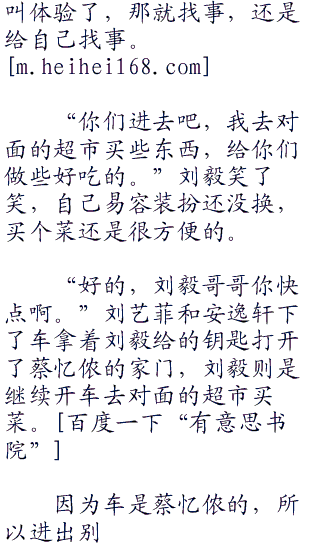 叫体验了，那就找事，还是
给自己找事。
[m.heihei168.com]
“你们进去吧，我去对
面的超市买些东西，给你们
做些好吃的。”刘毅笑了
笑，自己易容装扮还没换，
买个菜还是很方便的。
“好的，刘毅哥哥你快
点啊。”刘艺菲和安逸轩下
了车拿着刘毅给的钥匙打开
了蔡忆侬的家门，刘毅则是
继续开车去对面的超市买
菜。[百度一下“有意思书
院”]
因为车是蔡忆侬的，所
以进出别